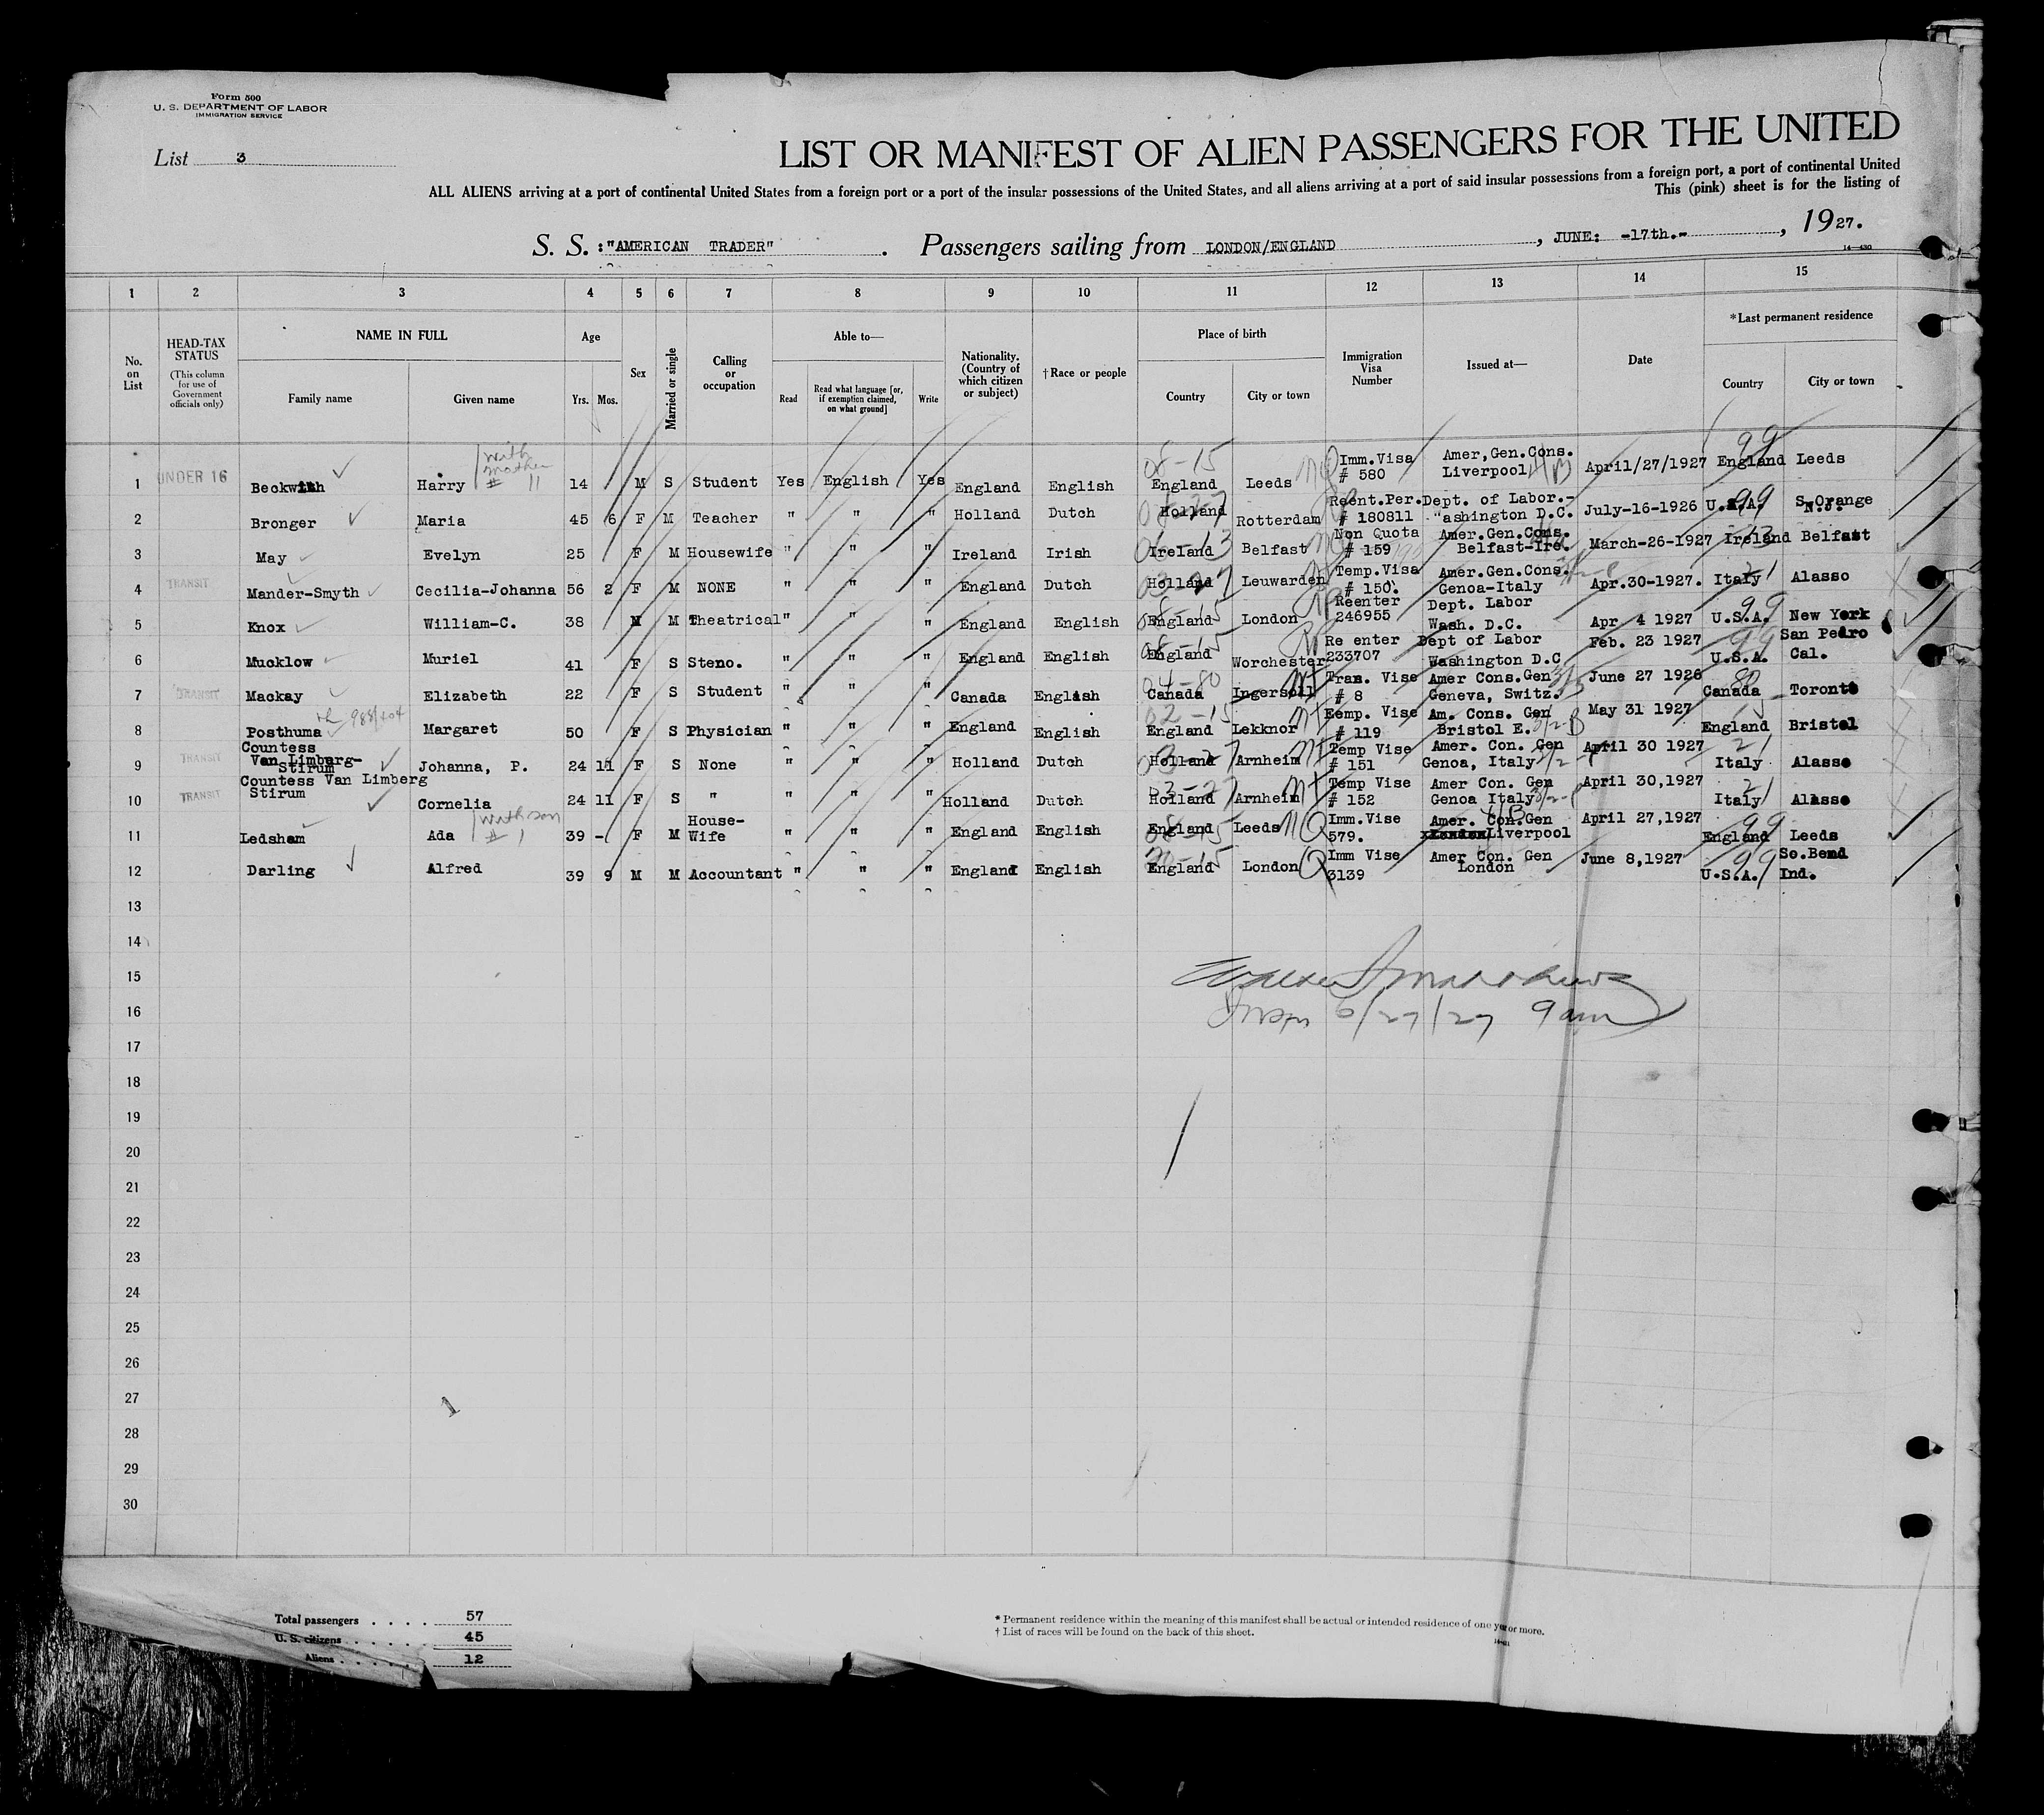 Form 500
U. S. DEPARTMENT OF LABOR
IMMIGRATION SERVICE
List 3
LIST OR MANIFEST OF ALIEN PASSENGERS FOR THE UNITED
ALL ALIENS arriving at a port of continental United States from a foreign port or a port of the insular possessions of the United States, and all aliens arriving at a port of said insular possessions from a foreign port, a port of continental United
This (pink) sheet is for the listing of
S. S. :"AMERICAN TRADER" . Passengers sailing from LONDON/ENGLAND , JUNE: -17th.- , 1927.
14-430
1 2 3 4 5 6 7 8 9 10 11 12 13 14 15
No. on List
HEAD-TAX STATUS
(This column for use of Government officials only)
NAME IN FULL
Family name Given name
Age
Yrs. Mos.
Sex
Married or single
Calling or occupation
Able to—
Read
Read what language [or, if exemption claimed, on what ground]
Write
Nationality. (Country of which citizen or subject)
†Race or people
Place of birth
Country City or town
Immigration Visa Number
Issued at—
Date
*Last permanent residence
Country City or town
1 UNDER 16 Beckwith Harry with mother # 11 14 M S Student Yes English Yes England English 08-15 England Leeds NQ Imm.Visa # 580 Amer,Gen.Cons. Liverpool April/27/1927 99 England Leeds
2 Bronger Maria 45 6 F M Teacher " " " Holland Dutch Holland Rotterdam Reent.Per. # 180811 Dept. of Labor.- "ashington D.C. July-16-1926 U.S.A. 99 S.Orange N.J.
3 May Evelyn 25 F M Housewife " " " Ireland Irish Ireland Belfast Non Quota # 159 Amer.Gen.Cons. Belfast-Ire. March-26-1927 Ireland 13 Belfast
4 TRANSIT Mander-Smyth Cecilia-Johanna 56 2 F M NONE " " " England Dutch Holland 03-27 Leuwarden Temp.Visa # 150. Amer.Gen.Cons. Genoa-Italy Apr.30-1927. Italy 21 Alasso
5 Knox William-C. 38 M M Theatrical " " " England English England 08-15 London Reenter 246955 Dept. Labor Wash. D.C. Apr. 4 1927 99 U.S.A. New York
6 Mucklow Muriel 41 F S Steno. " " " England English 08-15 England Worchester Re enter 233707 Dept of Labor Washington D.C Feb. 23 1927 99 U.S.A. San Pedro Cal.
7 TRANSIT Mackay Elizabeth 22 F S Student " " " Canada English 04-80 Canada Ingersoll Tran. Vise # 8 Amer Cons.Gen Geneva, Switz. June 27 1926 80 Canada Toronto
8 Posthuma Margaret 50 F S Physician " " " England English 02-15 England Lekknor Temp. Vise # 119 Am. Cons. Gen Bristol E. May 31 1927 15 England Bristol
9 TRANSIT Countess Van Limburg-Stirum Johanna, P. 24 11 F S None " " " Holland Dutch 03-27 Holland Arnheim Temp Vise # 151 Amer. Con. Gen Genoa, Italy April 30 1927 21 Italy Alasso
10 TRANSIT Countess Van Limberg Stirum Cornelia 24 11 F S " " " " Holland Dutch 03-27 Holland Arnheim Temp Vise # 152 Amer Con. Gen Genoa Italy April 30,1927 21 Italy Alasso
11 Ledsham Ada with son # 1 39 - F M House-Wife " " " England English 08-15 England Leeds NQ Imm.Vise 579. Amer. Con.Gen Liverpool April 27,1927 99 England Leeds
12 Darling Alfred 39 9 M M Accountant " " " England English England London Q Imm Vise 3139 Amer Con. Gen London June 8,1927 99 U.S.A. So.Bend Ind.
13
14
15
16
6/27/27 9 am
17
18
19
20
21
22
23
24
25
26
27
28
29
30
Total passengers . . . . 57
U. S. citizens . . . . . . 45
Aliens . . . . . 12
* Permanent residence within the meaning of this manifest shall be actual or intended residence of one year or more.
† List of races will be found on the back of this sheet.